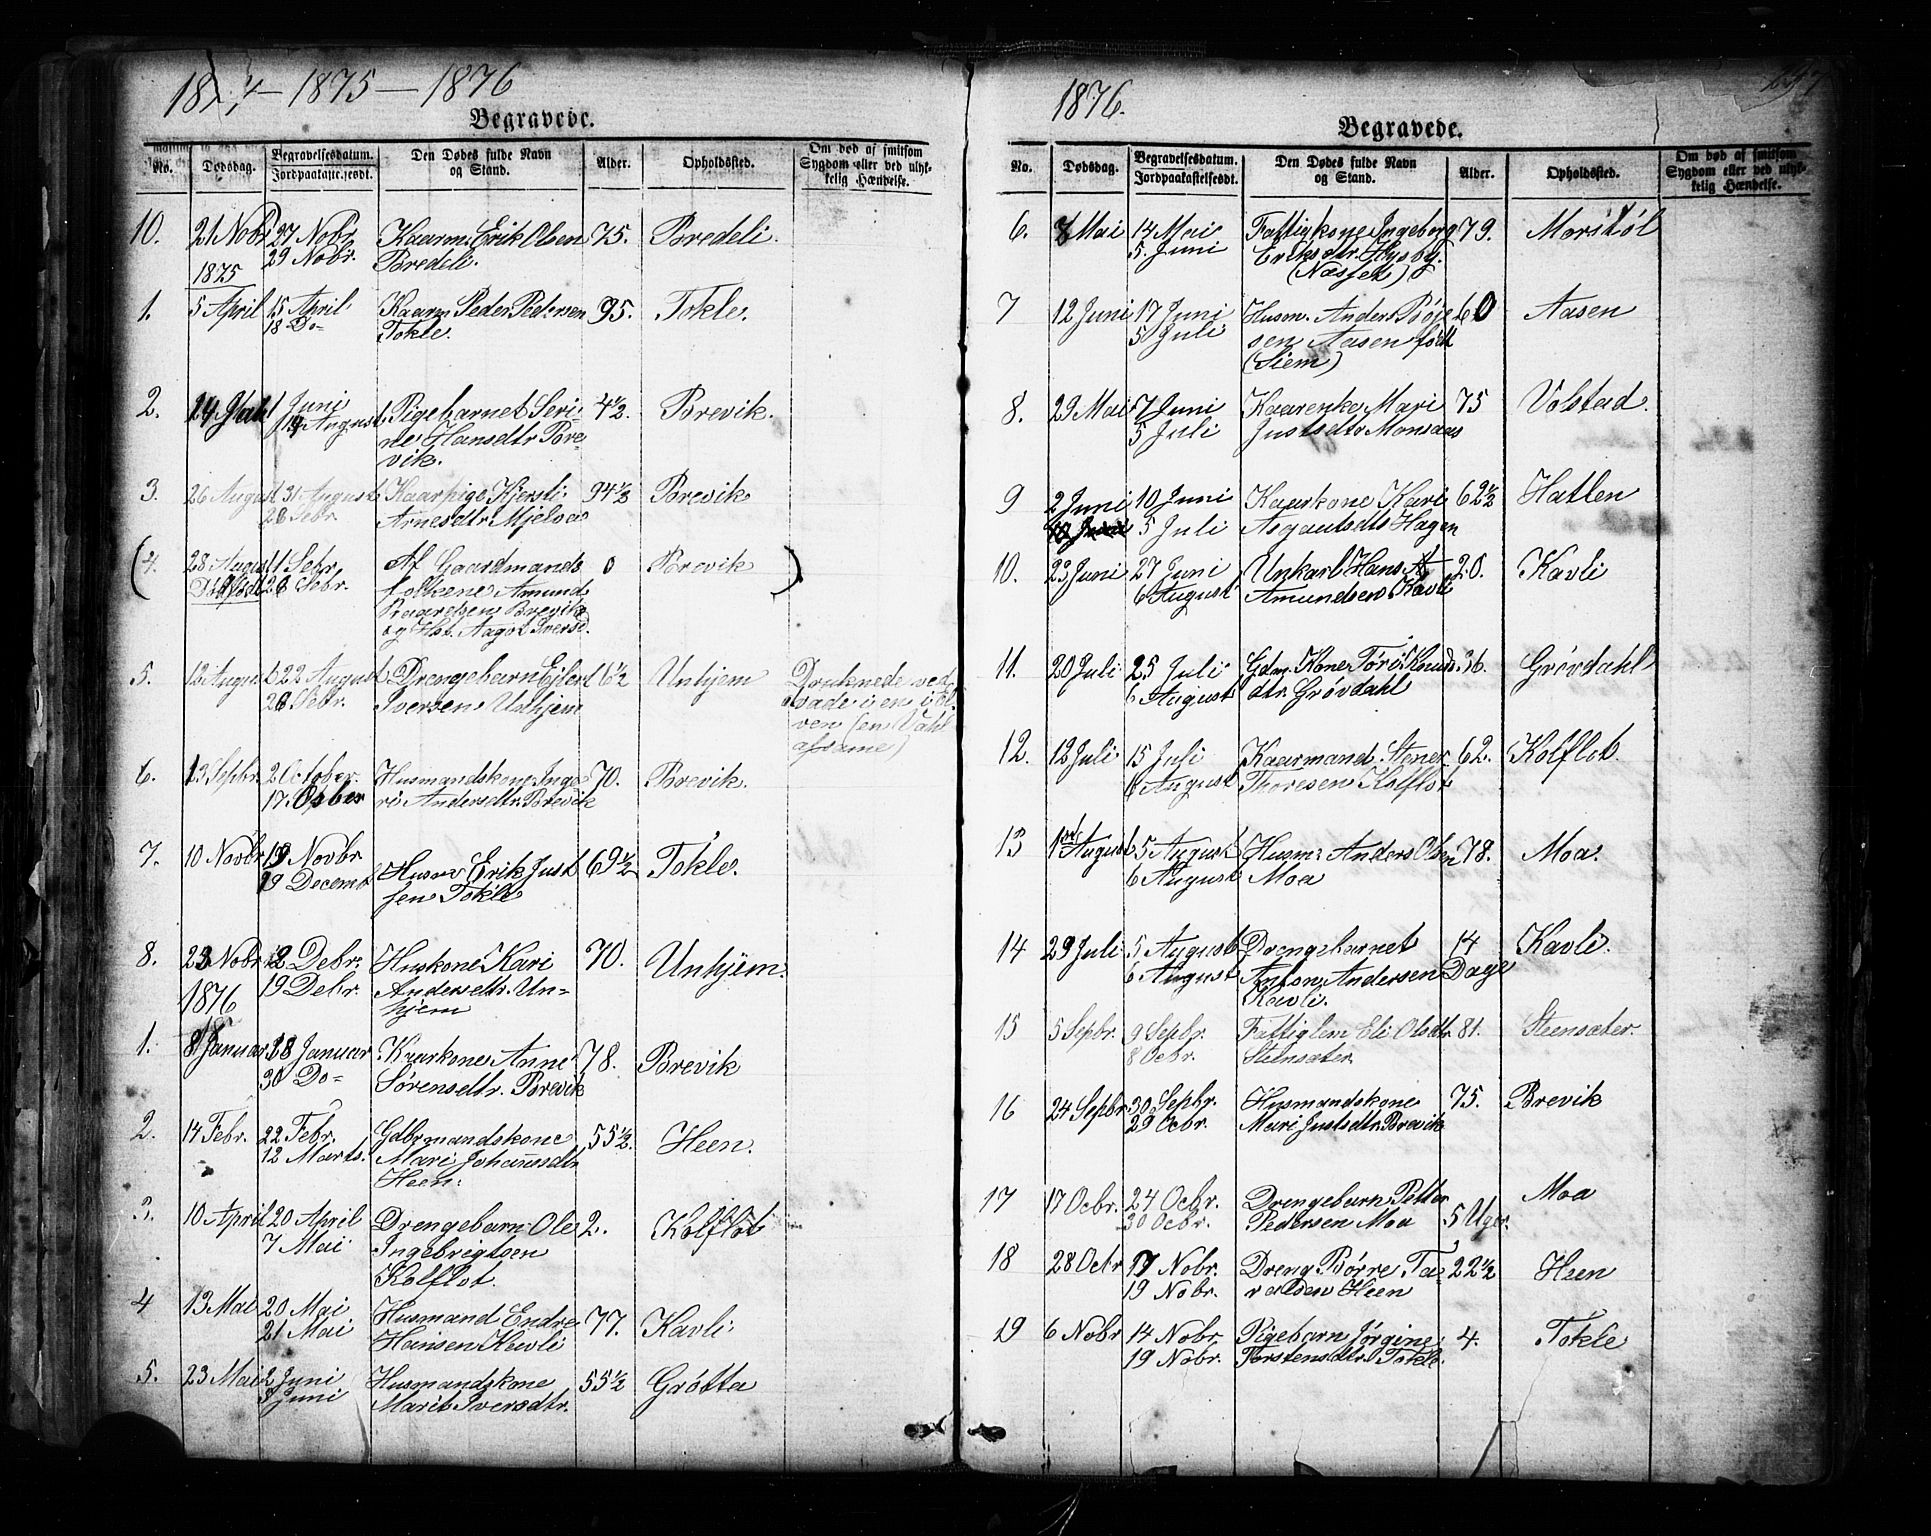 1874 - 1875 - 1876
Begravede.
No. Dødsdag. Begravelsesdatum. Jordpaakastelsesdt. Den Dødes fulde Navn og Stand. Alder. Opholdssted. Om død af smitsom Sygdom eller ved ulykkelig Hændelse.
10. 21 Nobr 27 Nobr. Kaarm. Erik Olsen 75. Bredeli.
29 Nobr. Bredeli.
1875
1. 5 April 15 April Kaarm Peder Pedersen 95. Tokle.
18 Do- Tokle.
2. 1 Juni Pigebarnet Seri- 4½. Brevik.
August ne Hansdtr Bre-
vik.
3. 26 August 31 August Kaarpige Kjersti 94½ Brevik
26 Sebr. Arnesdtr Mjelva
(4. 28 August 1 Sebr Af Gaardmands 0 Brevik )
26 Sebr. folkene Amund
Baardsen Brevik
og Hst. Aagot Iversd.
5. 12 August 22 August Drengebarn Ejlert 6½ Unhjem Druknede ved
26 Sebr. Iversen Unhjem bade i en i El-
ven (en Vahl
afsame)
6. 23 Sepbr. 2 October. Husmandskone Inge 70. Brevik.
17. October ri Andersdtr Brevik
7. 10 Novbr 19 Novbr Husm Erik Just 69½ Tokle.
19 Decemb sen Tokle
8. 23 Nobr 2 Debr. Huskone Kari 70. Unhjem.
1876 19 Debr. Andersdtr. Un-
hjem
1. 8 Januar 18 Januar Kaarkone Anne 78. Brevik
30 Do- Sørensdtr. Brevik
2. 14 Febr. 22 Febr. Gdbrmandskone 55½. Heen.
12 Marts. Mari Johannesdtr
Heen.
3. 10 April 20 April Drengebarn Ole 2. Kolflot
7 Mai Ingebrigtsen
Kolflot.
4 13 Mai 20 Mai Husmand Endre 77. Kavli
21 Mai Hansen Kavli
5. 23 Mai 2 Juni Husmandskone 55½ Grøtta
Juni Marit Iversdtr.
1876.
Begravede.
No. Dødsdag. Begravelsesdatum. Jordpaakastelsesdt. Den Dødes fulde Navn og Stand. Alder. Opholdssted. Om død af smitsom Sygdom eller ved ulykkelig Hændelse.
6. 8 Mai 14 Mai Fattigkone Ingeborg 79. Marstøl
5. Juni Eriksdtr. Hysby.
7 12 Juni 17 Juni Husm. Anders Børje 60 Aasen
5 Juli sen Aasen født
(Siem)
8. 29 Mai 7 Juni Kaarenke Mari 75 Volstad.
5 Juli Justsdtr Monsaas
9 2 Juni 10 Juni Kaarkone Kari 62½ Hatlen
5 Juli Asgautsdtr Hagen
10. 23 Juni 27 Juni Unkarl Hans A 20. Kavli
6 August Amundsen Kavli
11. 20 Juli 25 Juli Gdm. Kone Tøri Knuds 36. Grøvdahl
6 August dtr. Grøvdahl
12. 12 Juli 15 Juli Kaarmand Stener 62. Kolflot.
6 August Thoresen Kolflot
13 1ste August 5 August Husm. Anders Olsen 78. Moa.
6 August Moa
14 29 Juli 5 August Drengebarnet 14 Kavli.
6 August Anton Andersen Dage
Kavli.
15 5 Sepbr. 9 Sepbr. Fattiglem Eli Olsdtr 81. Steensæter.
8 Ocbr. Steensæter.
16 24 Sepbr 30 Sepbr. Husmandskone 75. Brevik
29 Ocbr. Mari Justsdtr. Brevik
17 17 Ocbr. 24 Ocbr. Drengebarn Petter Moa
30 Ocbr. Pedersen Moa 5 Uger.
18 28 Octr 17 Nobr. Dreng Børre Ta- 22½ Heen
19 Nobr. raldsen Heen
19 6 Nobr 14 Nobr. Pigebarn Jørgine 4. Tokle
19 Nobr. Torstensdtr. Tokle.